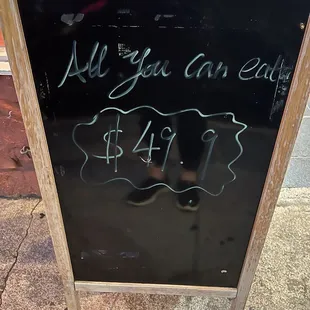 All You Can eat
$49 9